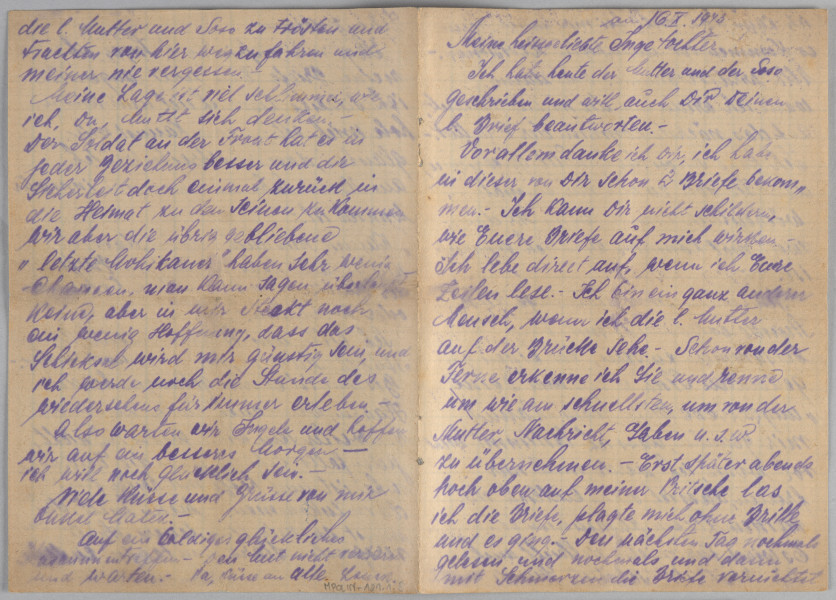 die l. Mutter und Soso zu trösten und
trachten von hier weg zu fahren und
meiner nie vergessen.-
Meine Lage ist viel schlimmer, wie
ich, Du, Mutti sich denken.-
Der Soldat an der Front hat es in
jeder Beziehung besser und die
Sicherheit doch einmal zurück in
die Heimat zu den Seinen zu kommen
wir aber die übrig gebliebene
"letzte Mohikaner" haben sehr wenig
Chancen, man kann sagen überhaupt
keine, aber in mir steckt noch
ein wenig Hoffnung, dass das
Schicksal wird mir günstig sein, und
ich werde noch die Stunde des
wiedersehens für immer erleben.-
Also warten wir Ingele und hoffen
wir auf ein besseres Morgen-
ich will noch glücklich sein.-
Viele Küsse und Grüsse von mir
Onkel
Auf ein baldiges glückliches
den Mut nicht verlieren
und warten.- Pa, Küsse an alle.
am 16.X. 1943
Meine heissgeliebte Inge tochter
Ich habe heute der Mutter und der Soso
geschrieben und will auch Dir Deinen
l. Brief beantworten.-
Vor allem danke ich Dir, ich habe
in dieser von Dir schon 2 Briefe bekom-
men.- Ich kann Dir nicht schildern,
wie Euere Briefe auf mich wirken.-
Ich lebe direkt auf, wenn ich Eure
Zeilen lese.- Ich bin ein ganz anderer
Mensch, wenn ich die l. Mutter
auf der Brücke sehe.- Schon von der
Ferne erkenne ich Sie und renne
um wie am schnellsten, um von der
Mutter, Nachricht, Gaben u.s.w.
zu übernehmen.- Erst später abends
hoch oben auf meiner Pritsche las
ich die Briefe, plagte mich ohne Brille
und es ging.- Den nächsten Tag nochmals
gelesen und nochmals und dann
mit Schmerzen die Briefe vernichtet